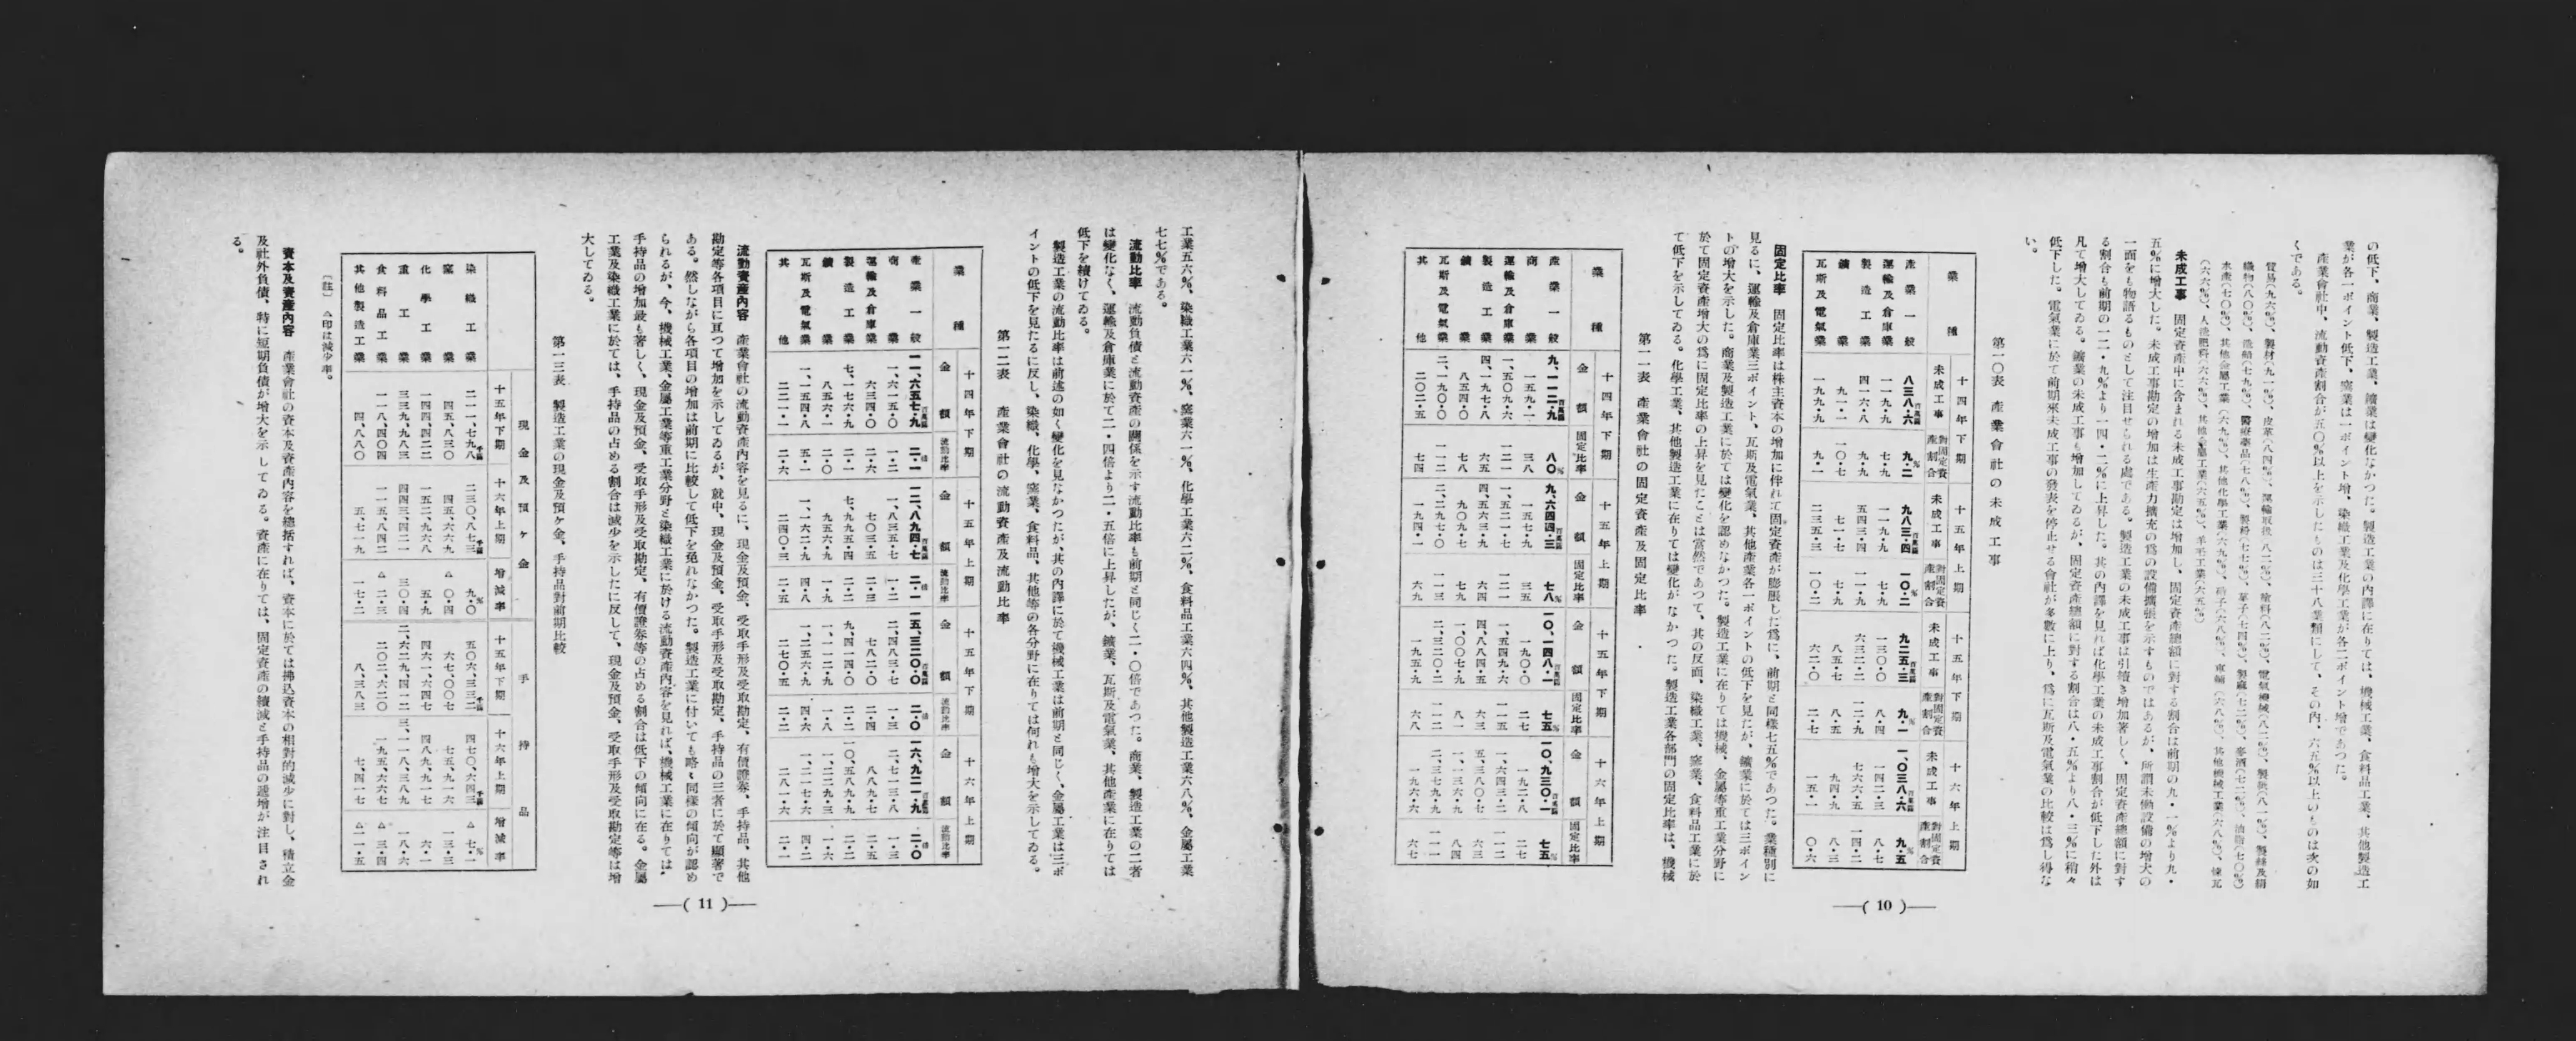 の低下、商業、製造工業、鑛業は變化なかつた。製造工業の内譯に在りては、機械工業、食料品工業、其他製造工
業が各一ポイント低下、窯業は一ポイント増、染織工業及化學工業が各二ポイント増であつた。
産業會社中、流動資産割合が五〇%以上を示したものは三十八業類にして、その内、六五%以上のものは次の如
くである。
未成工事　固定資産中に含まれる未成工事勘定は増加し、固定資産總額に對する割合は前期の九・一%より九・
五%に増大した。未成工事勘定の増加は生産力擴充の爲の設備擴張を示すものではあるが、所謂未働設備の増大の
一面をも物語るものとして注目せられる處である。製造工業の未成工事は引續き増加著しく、固定資産總額に對す
る割合も前期の一二・九%より一四・二%に上昇した。其の内譯を見れば化學工業の未成工事割合が低下した外は
凡て増大してゐる。鑛業の未成工事も増加してゐるが、固定資産總額に對する割合は八・五%より八・三%に稍々
低下した。電氣業に於て前期來未成工事の發表を停止せる會社が多數に上り、爲に瓦斯及電氣業の比較は爲し得な
い。
第一〇表　産業會社の未成工事
業種　十四年下期　十五年上期　十五年下期　十六年上期
未成工事　對固定資産割合　未成工事　對固定資産割合　未成工事　對固定資産割合　未成工事　對固定資産割合
産業一般　八三八・六　九・二　九八三・四　一〇・二　九二五・三　九・一　一、〇三八・六　九・五
運輸及倉庫業　一一九・九　七・九　一一九・九　七・九　一三〇・〇　八・四　一四二・三　八・七
製造工業　四一六・八　九・九　五四三・四　一一・九　六三二・二　一二・九　七六六・五　一四・二
鑛業　九一・一　一〇・七　七一・七　七・九　八五・七　八・五　九四・九　八・三
瓦斯及電氣業　一九九・九　九・一　二三五・三　一〇・二　六二・〇　二・七　一五・一　〇・六
固定比率　固定比率は株主資本の増加に伴れて固定資産が膨脹した爲に、前期と同樣七五%であつた。業種別に
見るに、運輸及倉庫業三ポイント、瓦斯及電氣業、其他産業各一ポイントの低下を見たが、鑛業に於ては三ポイン
トの増大を示した。商業及製造工業に於ては變化を認めなかつた。製造工業に在りては機械、金屬等重工業分野に
於て固定資産増大の爲に固定比率の上昇を見たことは當然であつて、其の反面、染織工業、窯業、食料品工業に於
て低下を示してゐる。化學工業、其他製造工業に在りては變化がなかつた。製造工業各部門の固定比率は、機械
第一一表　産業會社の固定資産及固定比率
業種　十四年下期　十五年上期　十五年下期　十六年上期
金額　固定比率　金額　固定比率　金額　固定比率　金額　固定比率
産業一般　九、一一二・九　八〇　九、六四四・三　七八　一〇、一四八・一　七五　一〇、九三〇・一　七五
商業　一五九・一　三八　一五七・九　三五　一九〇・〇　二七　一九二・八　二七
運輸及倉庫業　一、五〇九・六　一二一　一、五二一・七　一二一　一、五四九・六　一一五　一、六四三・二　一一二
製造工業　四、一九七・八　六五　四、五六三・九　六四　四、八八四・五　六三　五、三八〇・七　六三
鑛業　八五四・〇　七八　九〇九・七　七九　一、〇〇七・九　八一　一、一三六・九　八四
瓦斯及電氣業　二、一九〇・〇　一一二　二、二九七・〇　一一三　二、三二〇・二　一一二　二、三七九・九　一一一
其他　二〇二・五　七四　一九四・一　六九　一九五・九　六八　一九六・六　六七
(10)
工業五六%、染織工業六一%、窯業六一%、化學工業六二%、食料品工業六四%、其他製造工業六八%、金屬工業
七七%である。
流動比率　流動負債と流動資産の關係を示す流動比率も前期と同じく二・〇倍であつた。商業、製造工業の二者
は變化なく、運輸及倉庫業に於て二・四倍より二・五倍に上昇したが、鑛業、瓦斯及電氣業、其他産業に在りては
低下を續けてゐる。
製造工業の流動比率は前述の如く變化を見なかつたが、其の内譯に於て機械工業は前期と同じく、金屬工業は三ポ
イントの低下を見たるに反し、染織、化學、窯業、食料品、其他等の各分野に在りては何れも増大を示してゐる。
第一二表　産業會社の流動資産及流動比率
業種　十四年下期　十五年上期　十五年下期　十六年上期
金額　流動比率　金額　流動比率　金額　流動比率　金額　流動比率
産業一般　一一、六五七・九　二・一　一二、八九四・七　二・一　一五、三二〇・〇　二・〇　一六、九二一・九　二・〇
商業　一、六一五・〇　一・二　一、八三五・七　一・二　二、四八三・七　一・三　二、七一三・八　一・三
運輸及倉庫業　六三四・〇　二・六　七〇三・五　二・三　七八二・〇　二・四　八八九・七　二・五
製造工業　七、一七六・九　二・一　七、九九五・四　二・二　九、四一四・〇　二・二　一〇、五八九・九　二・二
鑛業　八五六・一　二・〇　九五六・九　一・九　一、一一二・九　一・八　一、二二九・三　一・六
瓦斯及電氣業　一、一五四・八　五・一　一、一六二・九　四・八　一、二五六・九　四・六　一、二一七・六　四・二
其他　二二一・一　二・六　二四〇・三　二・五　二七〇・五　二・二　二八一・六　二・一
流動資産内容　産業會社の流動資産内容を見るに、現金及預金、受取手形及受取勘定、有價證券、手持品、其他
勘定等各項目に亙つて増加を示してゐるが、就中、現金及預金、受取手形及受取勘定、手持品の三者に於て顯著で
ある。然しながら各項目の増加は前期に比較して低下を免れなかつた。製造工業に付いても略〻同樣の傾向が認め
られるが、今、機械工業、金屬工業等重工業分野と染織工業に於ける流動資産内容を見れば、機械工業に在りては
手持品の増加最も著しく、現金及預金、受取手形及受取勘定、有價證券等の占める割合は低下の傾向に在る。金屬
工業及染織工業に於ては、手持品の占める割合は減少を示したに反して、現金及預金、受取手形及受取勘定等は増
大してゐる。
第一三表　製造工業の現金及預ヶ金、手持品對前期比較
現金及預ヶ金　手持品
十五年下期　十六年上期　増減率　十五年下期　十六年上期　増減率
染織工業　二一一、七九八　二三〇、八七三　九・〇　五〇六、三三二　四七〇、六四三　△七・一
窯業　四五、八三〇　四五、六六九　△〇・四　六七、〇〇七　七五、九一六　一三・三
化學工業　一四四、四二二　一五二、九六八　五・九　四六一、六四七　四八九、九一七　六・一
重工業　三三九、九八三　四四三、四二一　三〇・四　二、六二九、四一二　三、一一八、三八九　一八・六
食料品工業　一一八、四〇四　一一五、八四二　△二・三　二〇二、六二〇　一九五、六六七　△三・四
其他製造工業　四、八八〇　五、七一九　一七・二　八、三八三　七、四一七　△一一・五
〔註〕　△印は減少率。
資本及資産内容　産業會社の資本及資産内容を總括すれば、資本に於ては拂込資本の相對的減少に對し、積立金
及社外負債、特に短期負債が増大を示してゐる。資産に在りては、固定資産の續減と手持品の遞増が注目され
る。
(11)